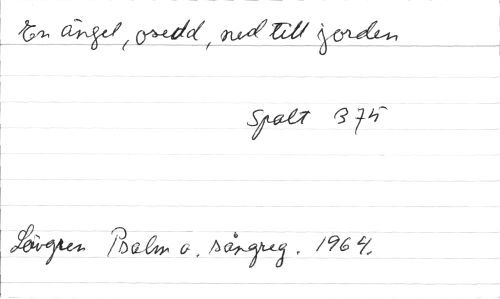 En ängel, osedd, ned till jorden
Spalt 375
Lövgren Psalm o. sångreg. 1964.